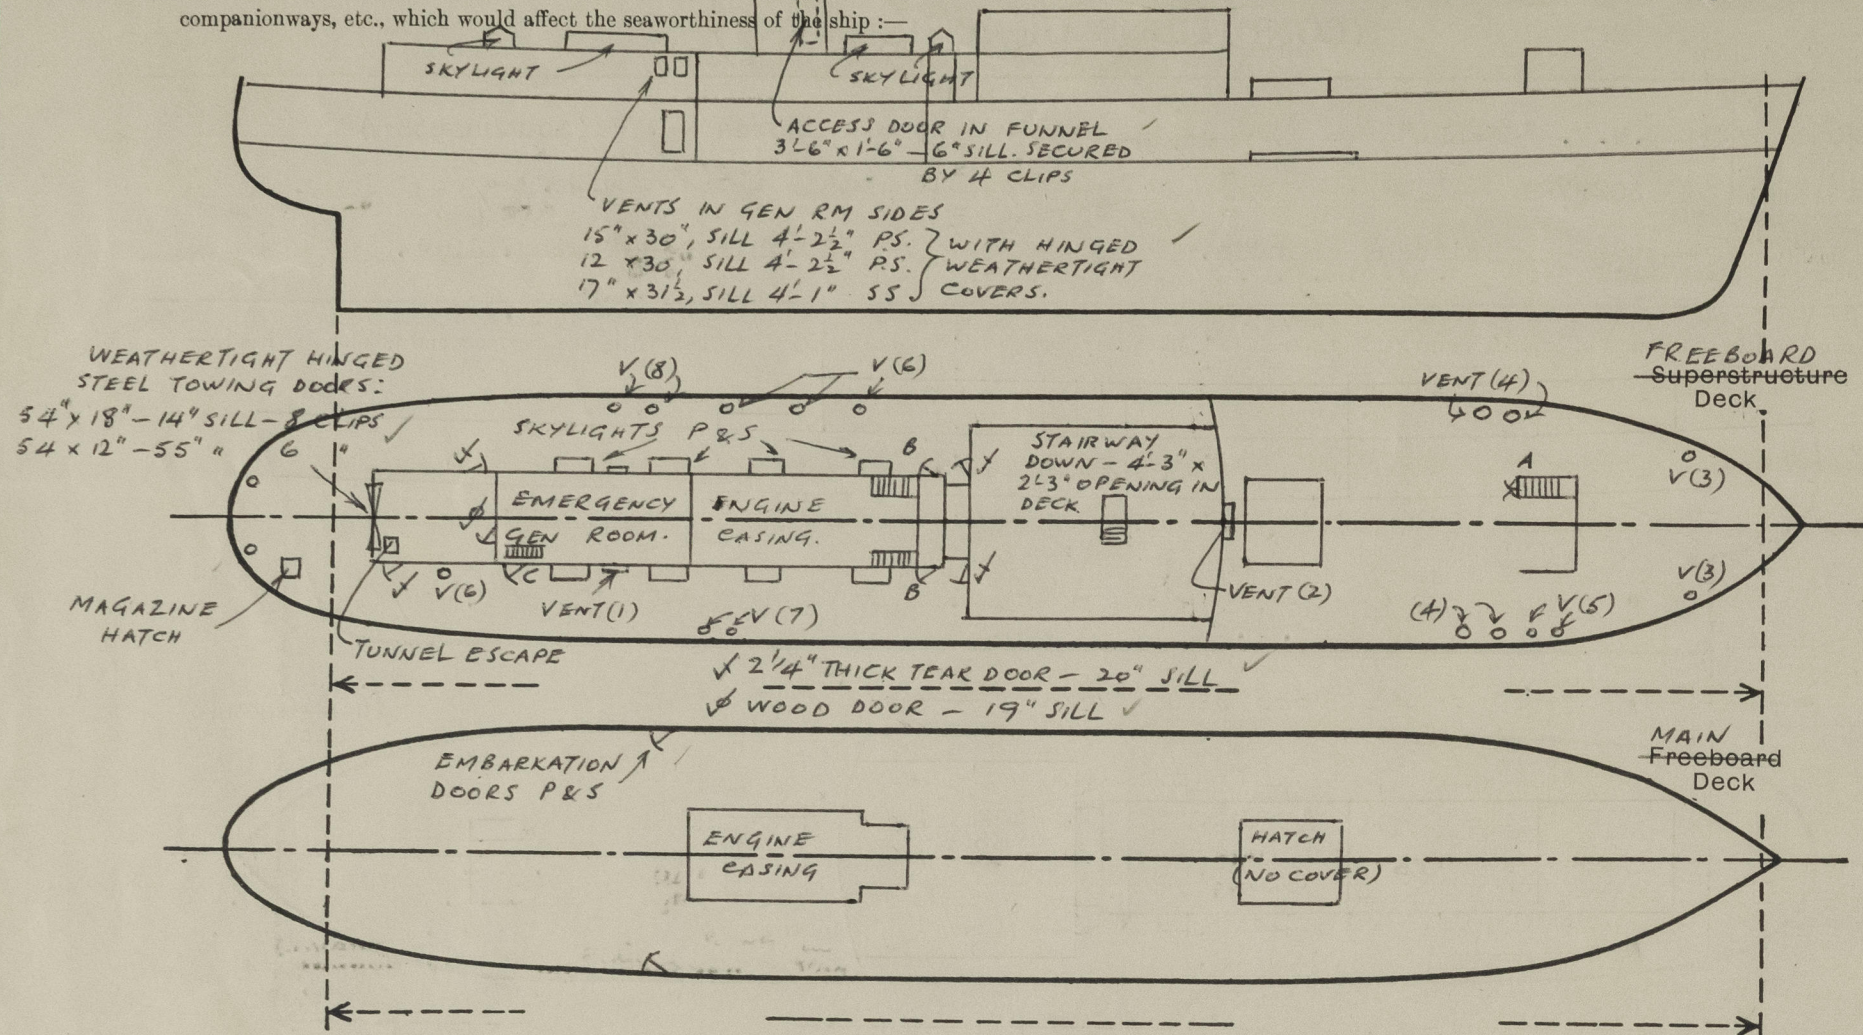 companionways, etc., which would affect the seaworthiness of the ship :—
SKYLIGHT
SKYLIGHT
ACCESS DOOR IN FUNNEL
3'-6" x 1'-6" — 6" SILL. SECURED
BY 4 CLIPS
VENTS IN GEN RM SIDES
15" x 30", SILL 4'-2½" P.S.
12 x 30, SILL 4'-2½" P.S.
17" x 31½, SILL 4'-1" SS
WITH HINGED
WEATHERTIGHT
COVERS.
WEATHERTIGHT HINGED
STEEL TOWING DOORS:
54" x 18" — 14" SILL — 8 CLIPS
54 x 12" — 55" " 6 "
V(8)
V(6)
VENT (4)
FREEBOARD
Superstructure
Deck
SKYLIGHTS P & S
B
STAIRWAY
DOWN — 4'-3" x
2'-3" OPENING IN
DECK
A
V(3)
EMERGENCY
GEN ROOM.
ENGINE
CASING.
C
V(6)
VENT(1)
B
VENT(2)
V(3)
(4)
V(5)
V(7)
MAGAZINE
HATCH
TUNNEL ESCAPE
2¼" THICK TEAR DOOR — 20" SILL
WOOD DOOR — 19" SILL
EMBARKATION
DOORS P & S
MAIN
Freeboard
Deck
ENGINE
CASING
HATCH
(NO COVER)